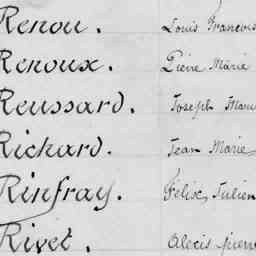 Renou. Louis Francois
Renoux. Pierre Marie
Reussard. Joseph Marie
Richard. Jean Marie
Rinfray. Félix Julien
Rivet. Alexis pierre